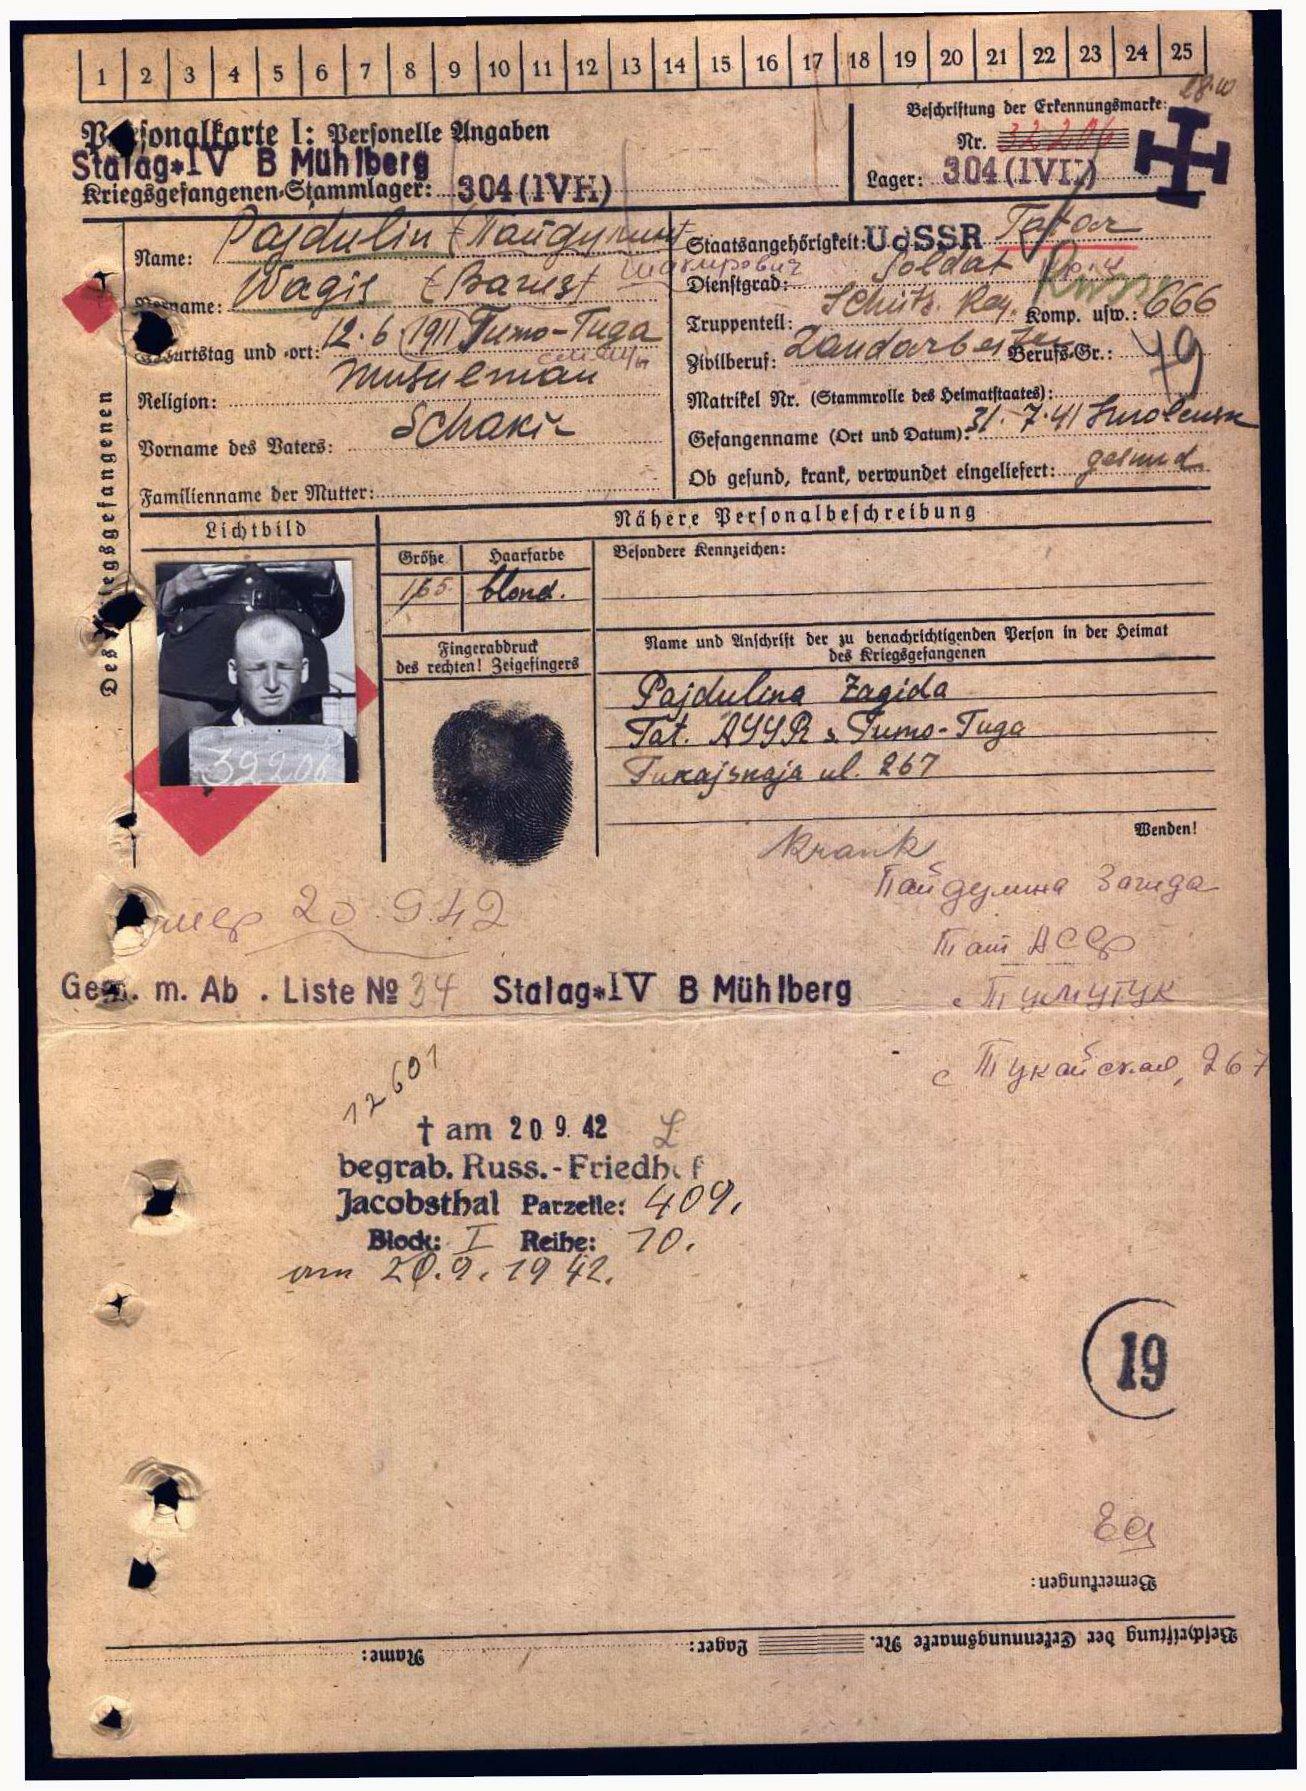 1 2 3 4 5 6 7 8 9 10 11 12 13 14 15 16 17 18 19 20 21 22 23 24 25
Personalkarte I: Personelle Angaben
Stalag*IV B Mühlberg
Kriegsgefangenen-Stammlager: 304 (IVH)
Beschriftung der Erkennungsmarke:
Nr. 32206
Lager: 304 (IVH)
Des Kriegsgefangenen
Name: Pajdulin
Vorname: Wagis
Шакирович
Geburtstag und -ort: 12.6.1911 Tumo-Tuga
Religion: Musulman
Vorname des Vaters: Schakir
Familienname der Mutter:
Staatsangehörigkeit: UdSSR Tatar
Dienstgrad: Soldat
Truppenteil: Schütz. Reg. Komp. usw.: 666
Zivilberuf: Landarbeiter Berufs-Gr.: 49
Matrikel Nr. (Stammrolle des Heimatstaates):
Gefangenname (Ort und Datum): 31.7.41 Smolensk
Ob gesund, krank, verwundet eingeliefert: gesund
Lichtbild
Nähere Personalbeschreibung
Größe Haarfarbe
165 blond.
Besondere Kennzeichen:
Fingerabdruck
des rechten! Zeigefingers
32206
Name und Anschrift der zu benachrichtigenden Person in der Heimat
des Kriegsgefangenen
Pajdulina Zagida
Tat. ASSR s. Tumo-Tuga
Tukajskaja ul. 267
Wenden!
krank
Пайдулина Загида
Тат АССР
с Тумутук
с Тукайская, 267
умер 20.9.42
Gem. m. Ab . Liste № 34 Stalag*IV B Mühlberg
12601
† am 20.9.42
begrab. Russ.-Friedhof
Jacobsthal Parzelle: 409.
Block: I Reihe: 10.
am 20.9.1942.
19
Bemerkungen:
Beschriftung der Erkennungsmarke Nr. Lager: Name: